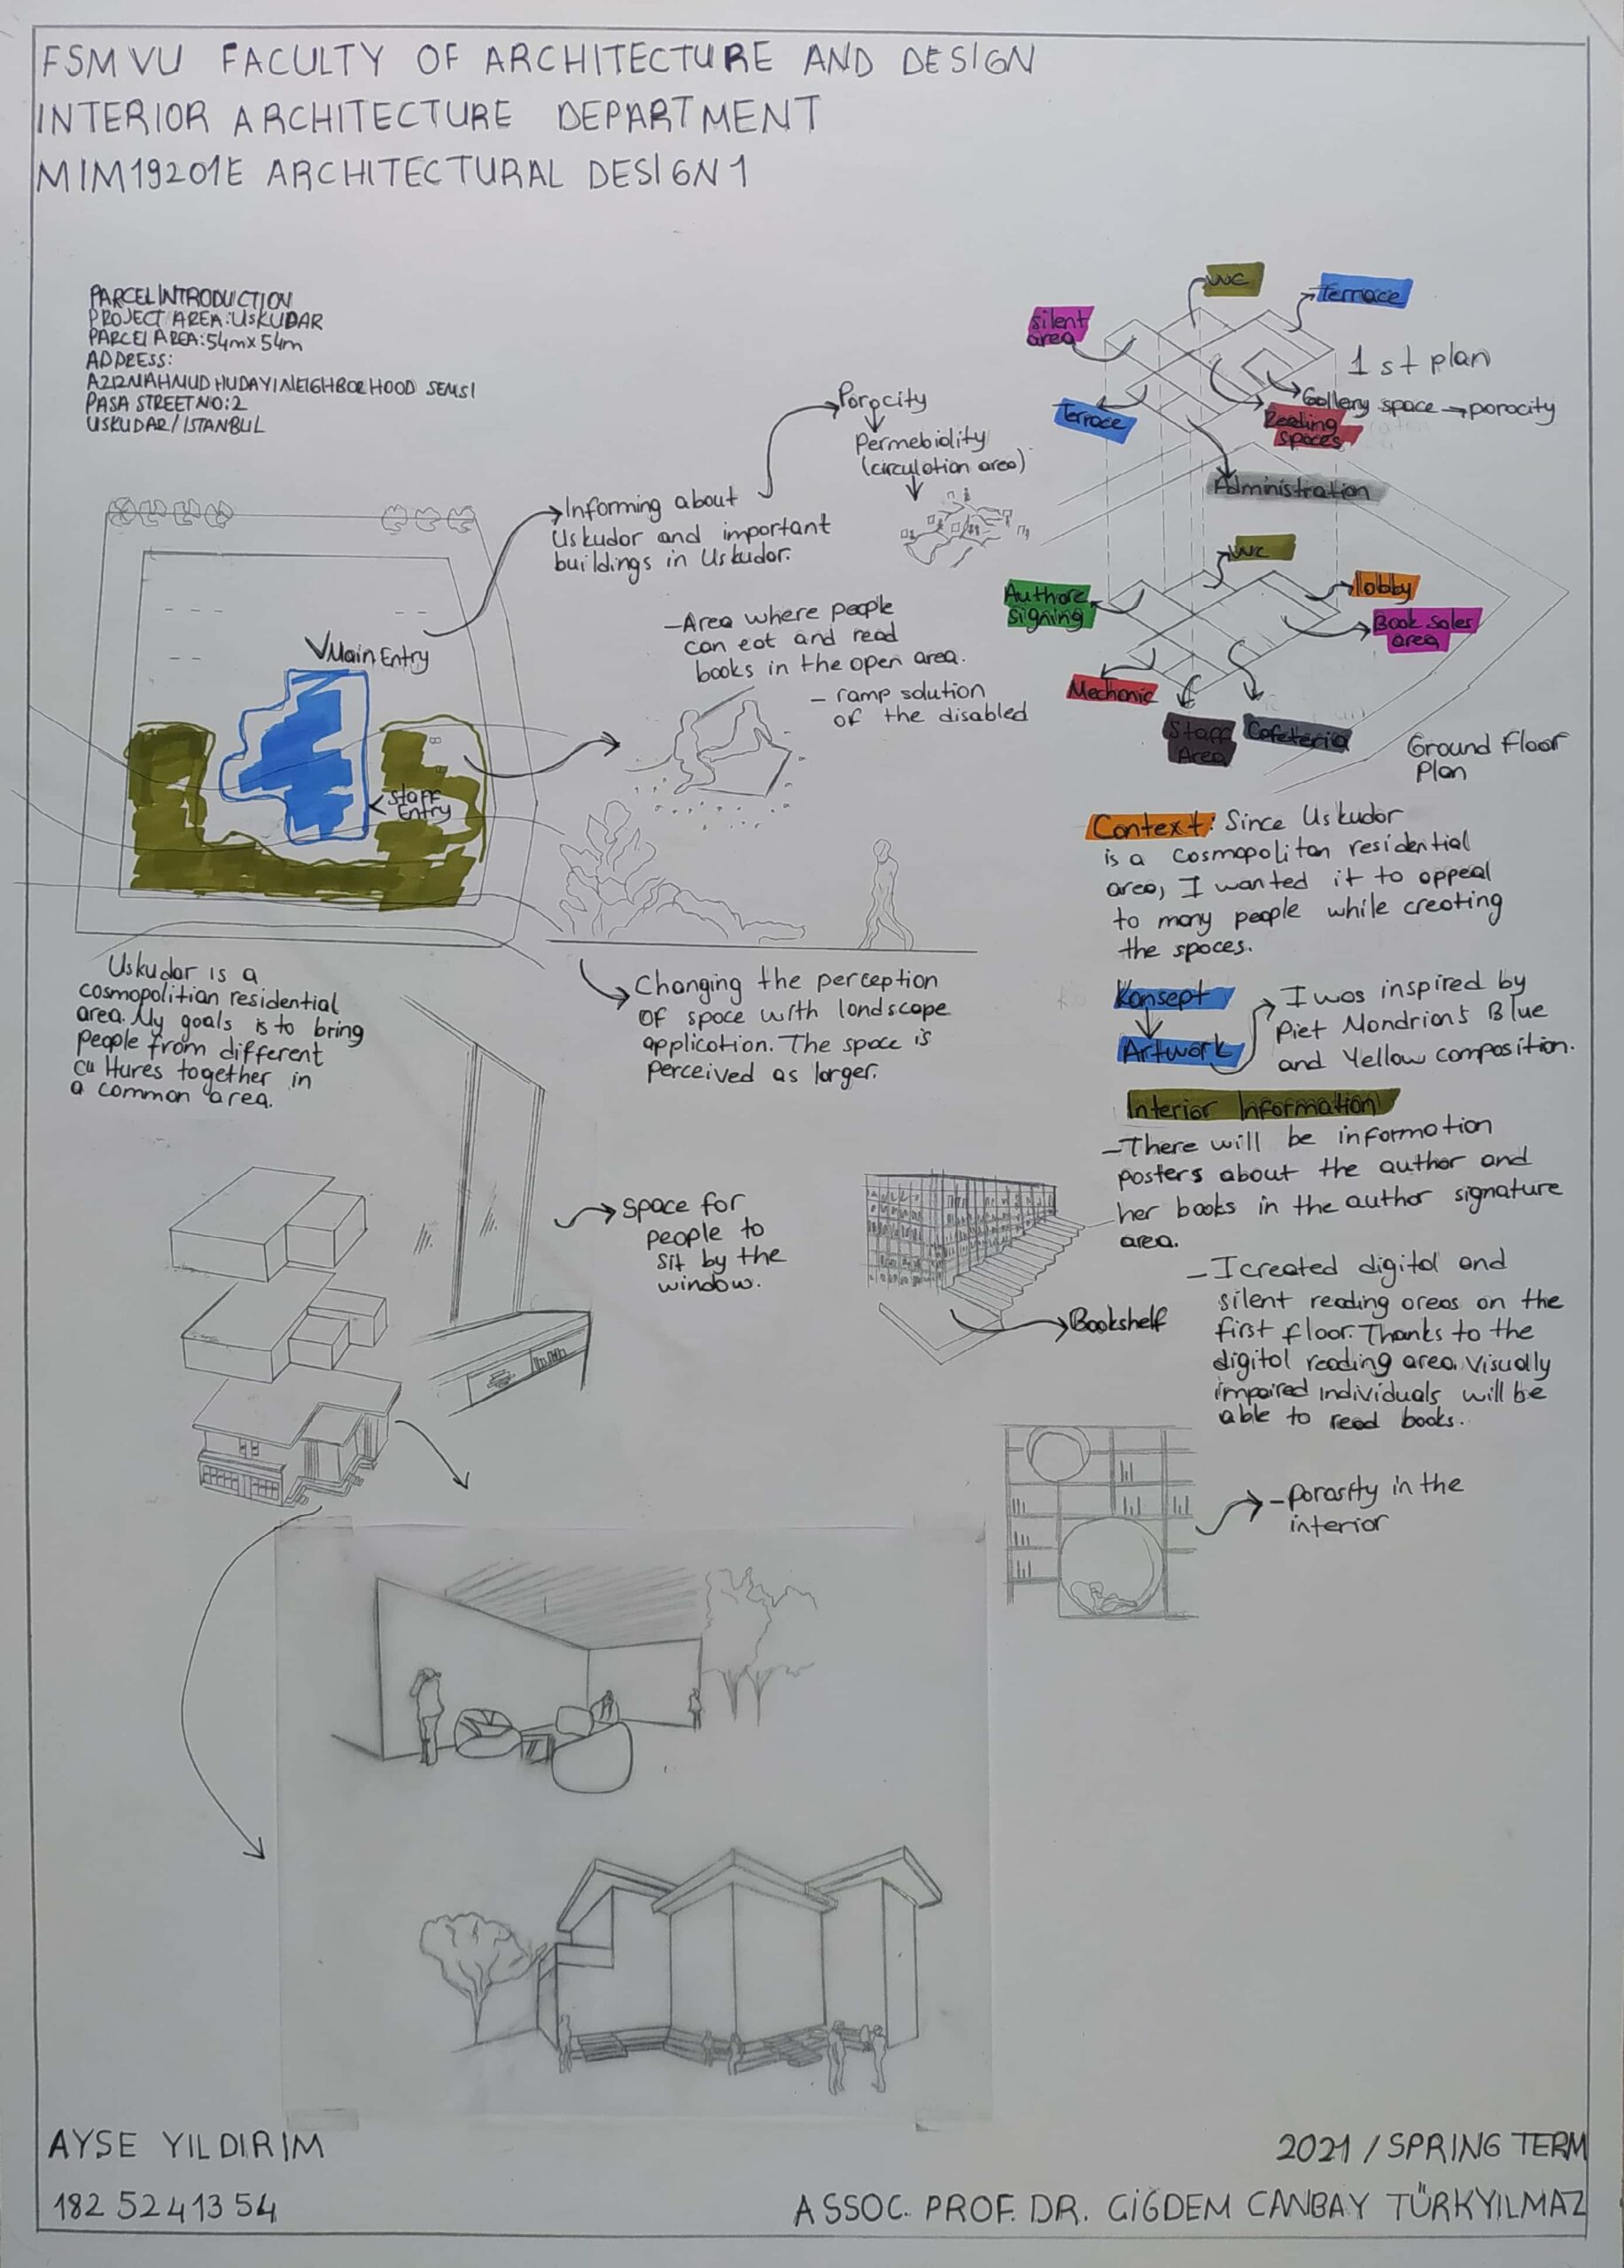 FSMVU FACULTY OF ARCHITECTURE AND DESIGN
INTERIOR ARCHITECTURE DEPARTMENT
MIM19201E ARCHITECTURAL DESIGN 1
PARCEL INTRODUCTION
PROJECT AREA: USKUDAR
PARCEL AREA: 54m x 54m
ADDRESS:
AZIZ MAHMUD HUDAYI NEIGHBORHOOD SEMSI
PASA STREET NO:2
USKUDAR/ISTANBUL
Main Entry
Staff
Entry
Informing about
Uskudar and important
buildings in Uskudar.
Porocity
Permebiolity
(circulation area)
-Area where people
can eat and read
books in the open area.
- ramp solution
of the disabled
WC
Terrace
Silent
area
1 st plan
Gallery space → porocity
Reading
spaces
Terrace
Administration
WC
Authore
signing
lobby
Book sales
area
Mechanic
Staff
Area
Cafeteria
Ground Floor
Plan
Context: Since Uskudar
is a cosmopolitan residential
area, I wanted it to appeal
to many people while creating
the spaces.
Konsept
Artwork
I was inspired by
Piet Mondrian's Blue
and Yellow composition.
Interior Information
-There will be information
posters about the author and
her books in the author signature
area.
- I created digital and
silent reading areas on the
first floor. Thanks to the
digital reading area, visually
impaired individuals will be
able to read books.
Uskudar is a
cosmopolitian residential
area. My goals is to bring
people from different
cultures together in
a common area.
Changing the perception
of space with landscape
application. The space is
perceived as larger.
space for
people to
sit by the
window.
Bookshelf
-porosity in the
interior
AYSE YILDIRIM
182 52 413 54
2021 / SPRING TERM
ASSOC. PROF. DR. ÇİĞDEM CANBAY TÜRKYILMAZ